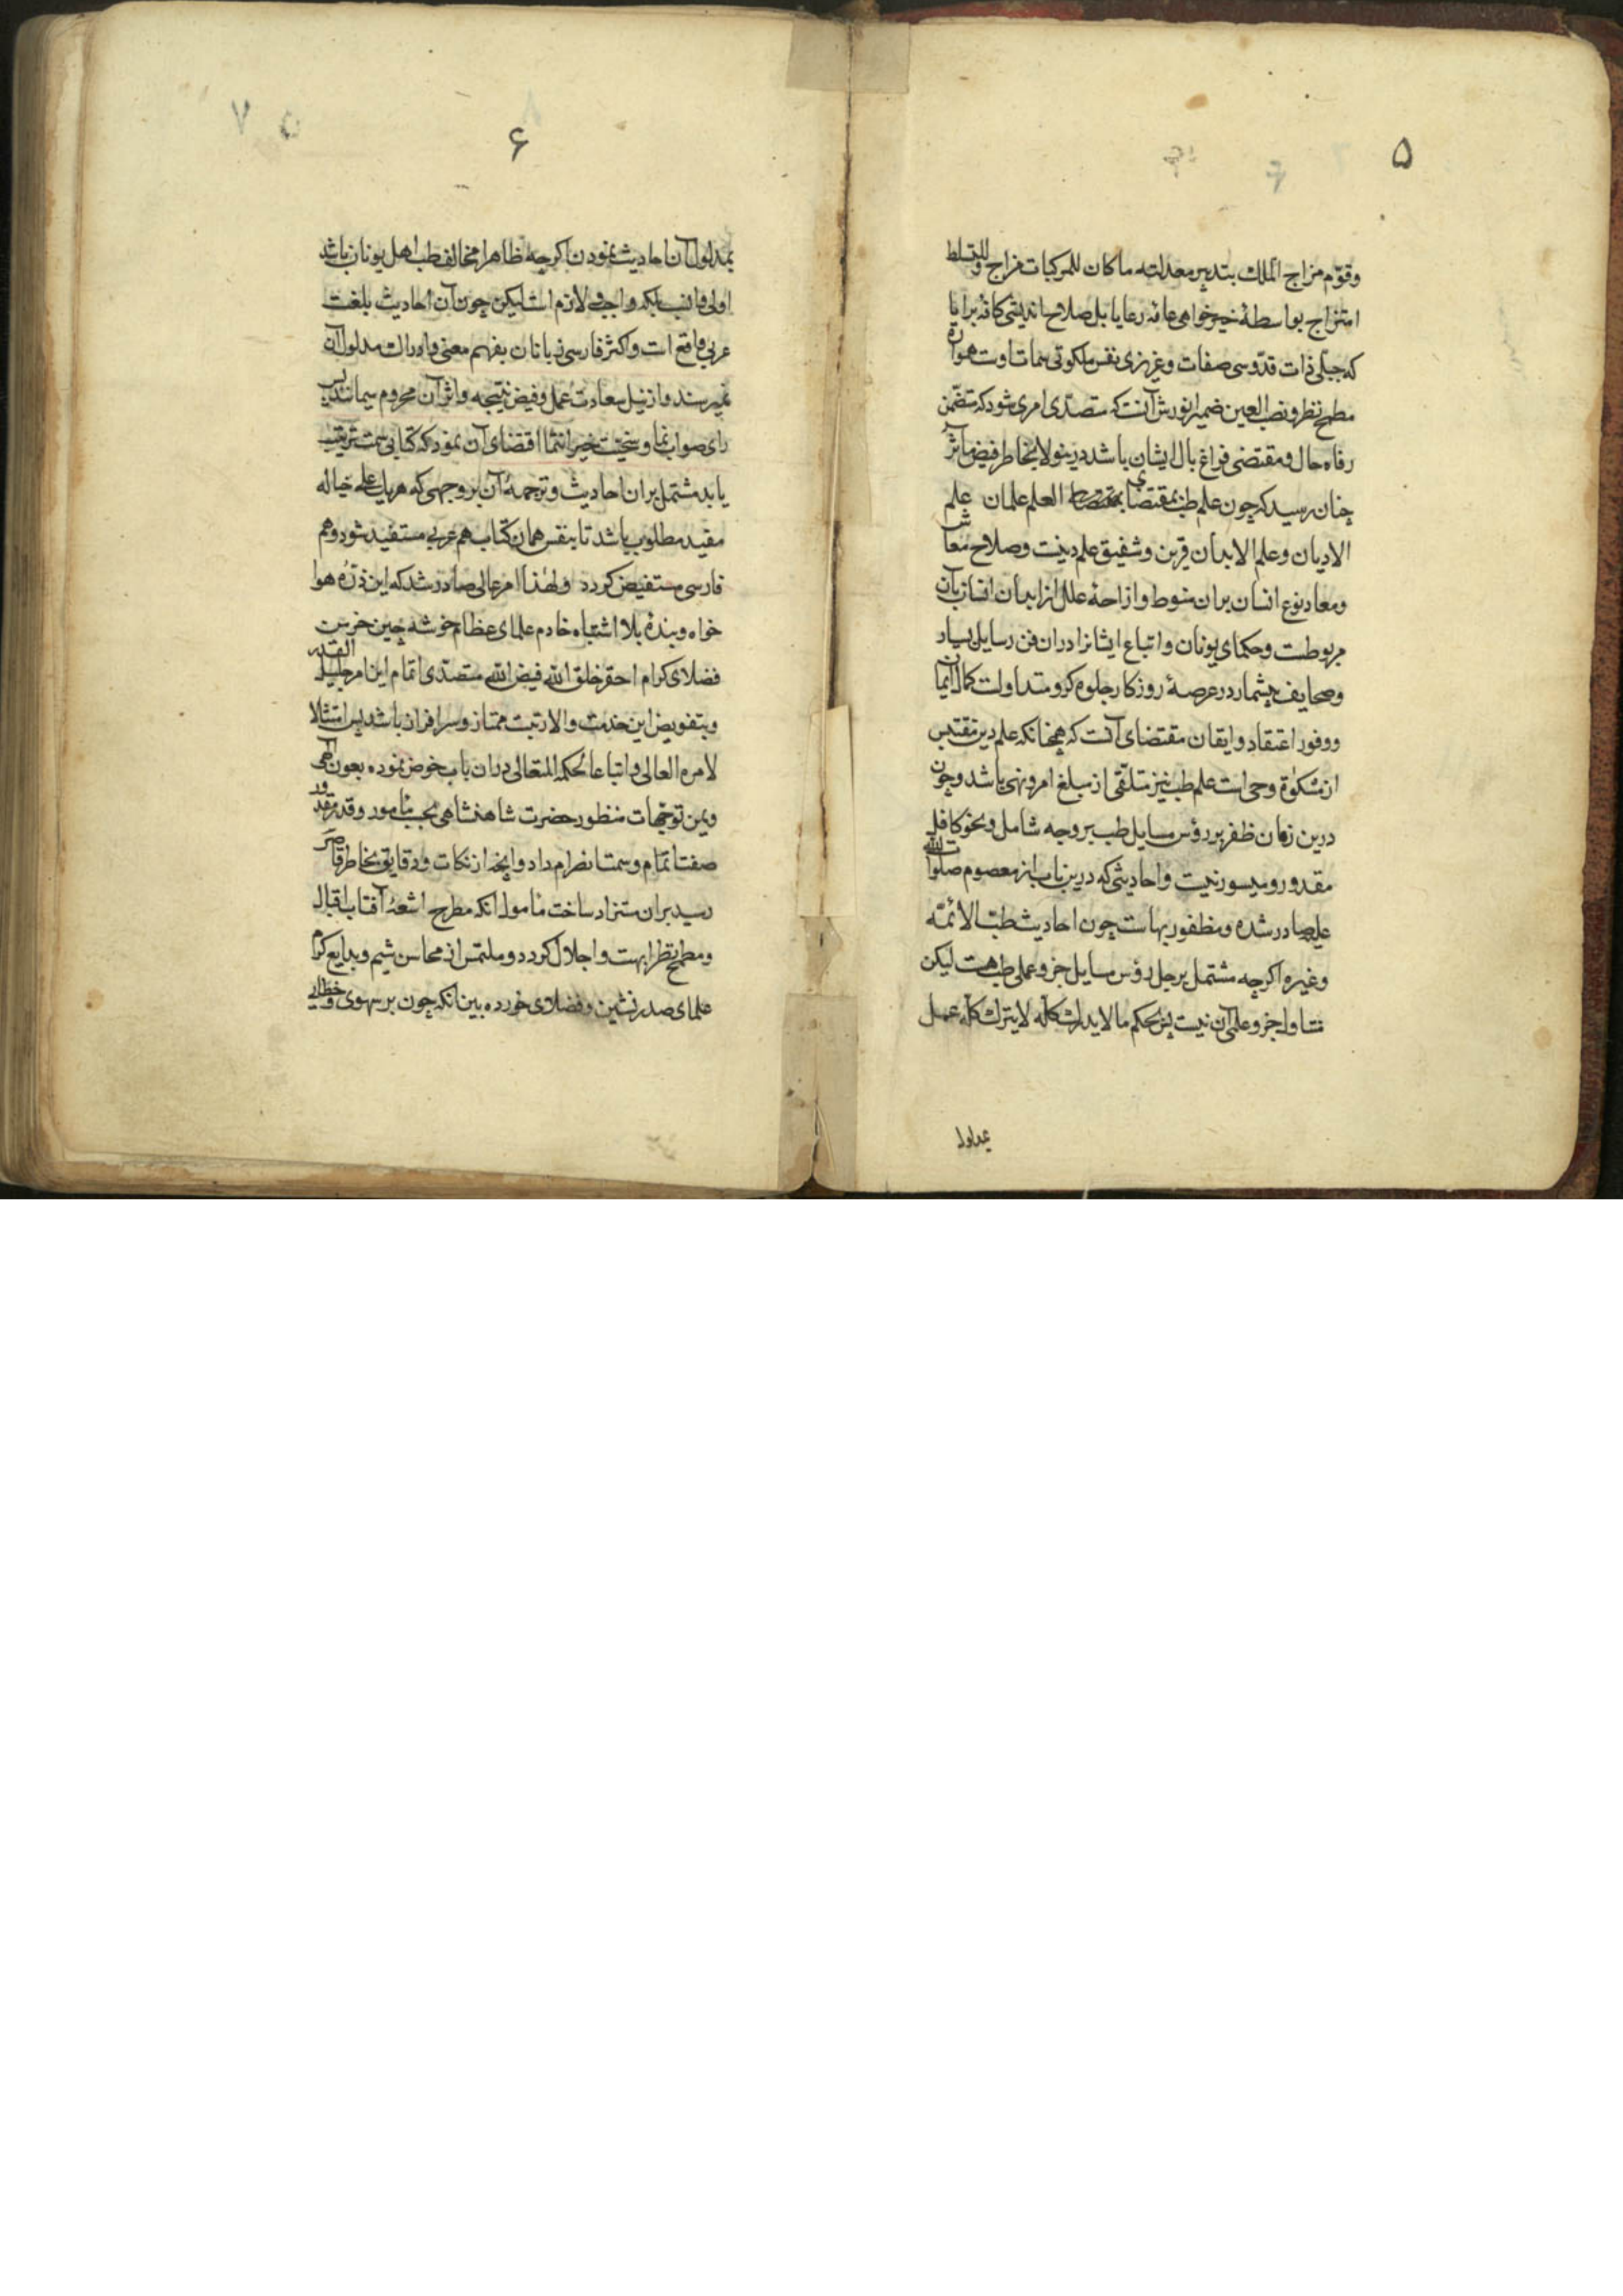 ۵
وقوّم مزاج الملك بتدبیر معدلته ما کان للمرکبات مزاج وللبسایط
امتزاج بواسطهٔ خیرخواهی عامهٔ رعایا بل صلاح اندیشی کافهٔ برایا
که جبلی ذات قدّوسی صفات و غریزی نفس ملکوتی سمات اوست همواره
مطمح نظر و نصب العین ضمیر انورش آنست که متصدّی امری شود که متضمّن
رفاه حال و مقتضی فراغ بال ایشان باشد درینولا بخاطر فیض مآثر
چنان رسید که چون علم طب بمقتضای العلم علمان علم
الادیان و علم الابدان قرین و شفیق علم دینست و صلاح معاش
و معاد نوع انسان بران منوط و ازاحهٔ علل از ابدان انسان بآن
مربوطست و حکمای یونان و اتباع ایشانرا دران فن رسایل بسیار
و صحایف بیشمار در عرصهٔ روزکار جلوه کر و متداولست کمال ایمان
و وفور اعتقاد و ایقان مقتضای آنست که همچنانکه علم دین مقتبس
از مشکوٰة وحی است علم طب نیز متلقّی از مبلغ امر و نهی باشد و چون
درین زمان ظفر بر رؤس مسایل طب بر وجه شامل و نحو کافل
مقدور و میسور نیست و احادیثی که درین باب از معصوم صلوات الله
علیه صادر شده و مظفور بهاست چون احادیث طب الائمّه
و غیره اکرچه مشتمل بر جل رؤس مسایل جزو عملی طب هست لیکن
متناول جزو علمی آن نیست پس بحکم ما لا یدرك کله لا یترك کله عمل
بمدلول
۶
بمدلول آن احادیث نمودن اکرچه ظاهرا مخالف طب اهل یونان باشد
اولی و انسب بلکه واجب و لازم است لیکن چون آن احادیث بلغت
عربی واقع است و اکثر فارسی زبانان بفهم معنی و ادراك مدلول آن
نمیرسند و از نیل سعادت عمل و فیض نتیجه و اثر آن محروم میمانند پس
رای صواب نما و سخیت خیر انتما اقتضای آن نمود که کتابی سمت ترتیب
یابد مشتمل بران احادیث و ترجمهٔ آن بر وجهی که هریك علی حیاله
مفید مطلوب باشد تا بنفس همان کتاب هم عربی مستفید شود و هم
فارسی مستفیض کردد ولهٰذا امر عالی صادر شد که این ذرّهٔ هوا
خواه و بندهٔ بلا اشتباه خادم علمای عظام خوشه چین خرمن
فضلای کرام احقر خلق الله فیض الله متصدّی اتمام این امر جلیل القدر
و بتفویض این خدمت والا رتبت ممتاز و سرافراز باشد پس امتثالا
لامره العالی و اتباعا لحکمه المتعالی دران باب خوض نموده بعون الٰهی
و یمن توجّهات منظور حضرت شاهنشاهی بحسب مأمور و قدر مقدور
صفت اتمام و سمت انصرام داد و آنچه از نکات و دقایق بخاطر قاصر
رسید بران مستزاد ساخت مأمول انکه مطرح اشعهٔ آفتاب اقبال
و مطمح نظر ابهت و اجلال کردد و ملتمس از محاسن شیم و بدایع کرم
علمای صدرنشین و فضلای خورده بین انکه چون بر سهوی و خطایی